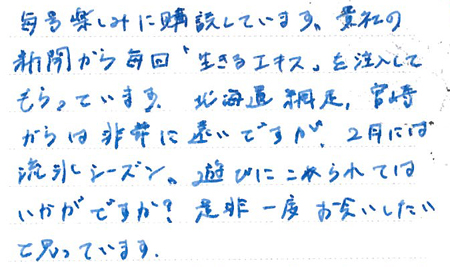 毎号楽しみに購読しています。貴社の
新聞から毎回「生きるエキス」を注入して
もらっています。 北海道網走、宮崎
からは非常に遠いですが、2月には
流氷シーズン。遊びにこられては
いかがですか? 是非一度お会いしたい
と思っています。